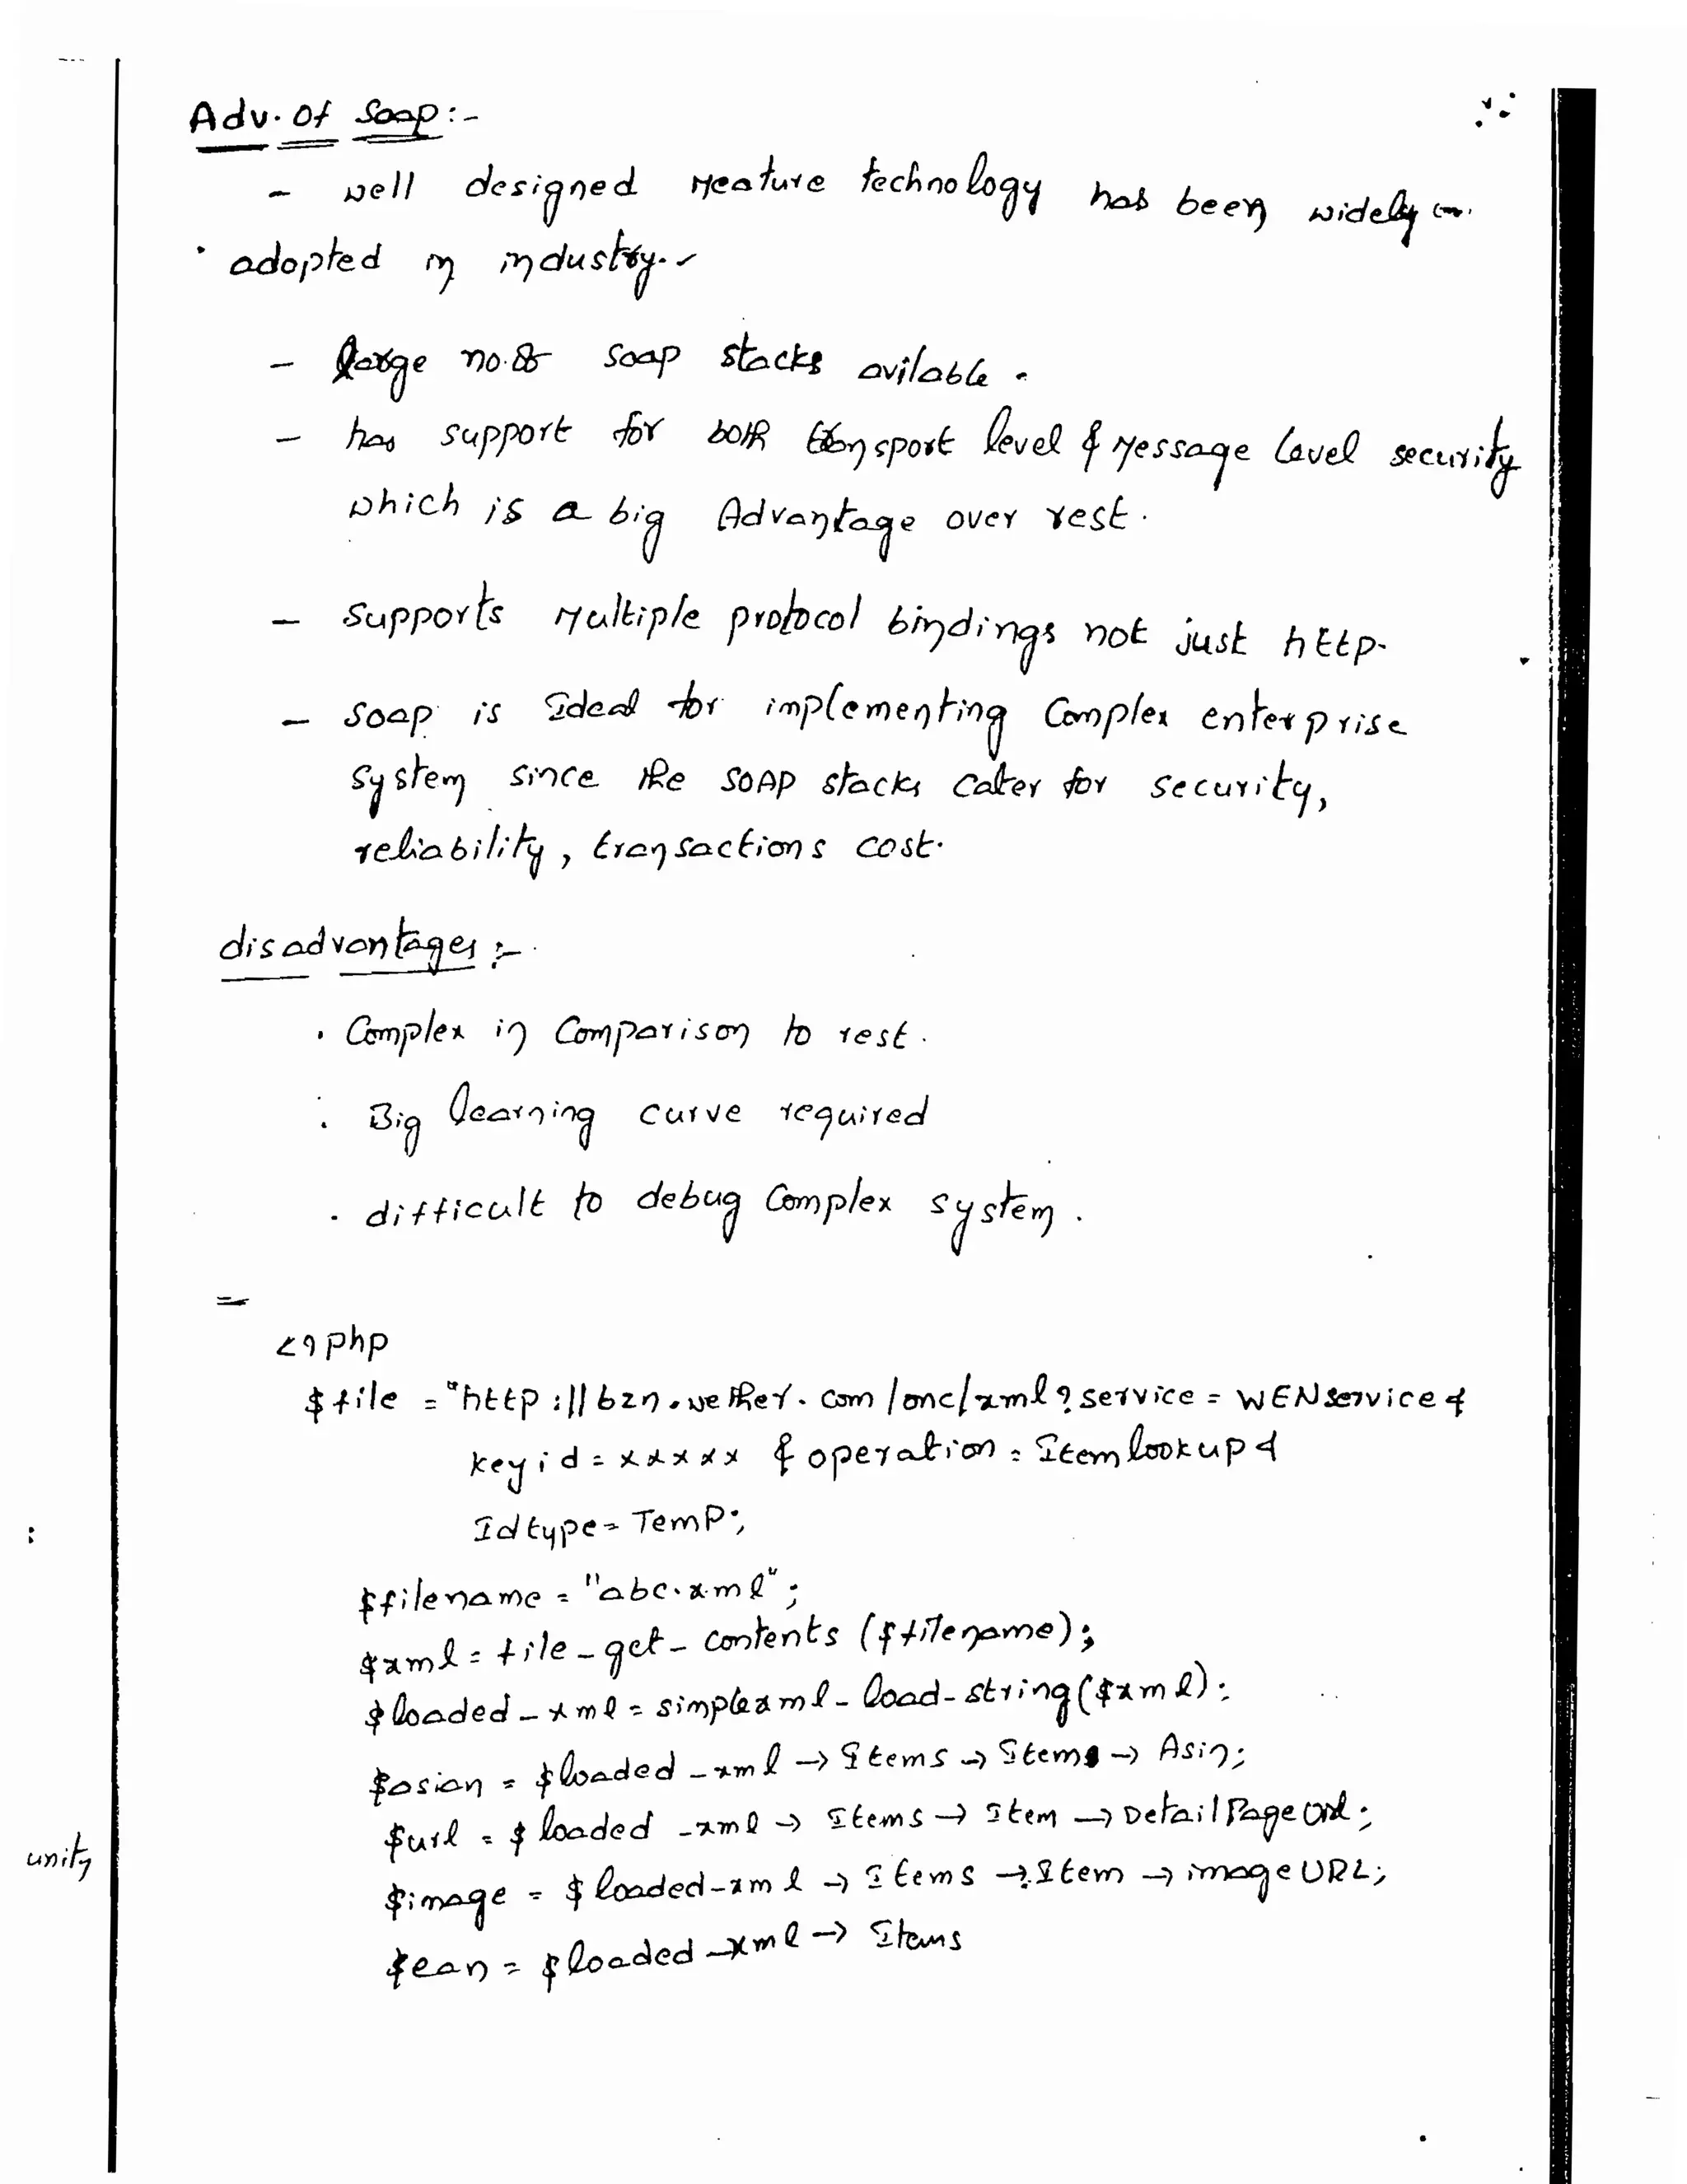 Adv. Of Soap :-
- well designed Meature technology has been widely
adopted in industry.
- large no.of soap stacks avilable.
- has support for both transport level & Message level security
which is a big Advantage over rest.
- supports Multiple protocol bindings not just http.
- soap is Ideal for implementing Complex enterprise
system since the SOAP stacks cater for security,
reliability, transactions cost.
disadvantages :-
. Complex in Comparison to rest.
. Big learning curve required
. difficult to debug Complex system.
<?php
$file = "http://bzn.wether.com/onc/xml?service=WENservice&
keyid=xxxxx & operation=Itemlookup&
Idtype=Temp";
$filename = "abc.xml";
$xml = file_get_contents ($filename);
$loaded_xml = simplexml_load_string($xml);
$asian = $loaded_xml → Items → Items → Asin;
$url = $loaded_xml → Items → Item → DetailPageUrl;
$image = $loaded_xml → Items → Item → imageURL;
$ean = $loaded_xml → Items
unity